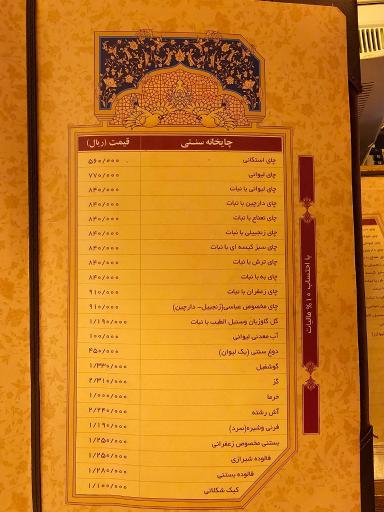 چایخانه سنتی قیمت (ریال)
چای استکانی ۵۶۰/۰۰۰
چای لیوانی ۷۷۰/۰۰۰
چای لیوانی با نبات ۸۴۰/۰۰۰
چای دارچین با نبات ۸۴۰/۰۰۰
چای نعناع با نبات ۸۴۰/۰۰۰
چای زنجبیلی با نبات ۸۴۰/۰۰۰
چای سبز کیسه ای با نبات ۸۴۰/۰۰۰
چای ترش با نبات ۸۴۰/۰۰۰
چای به با نبات ۸۴۰/۰۰۰
چای زعفران با نبات ۹۱۰/۰۰۰
چای مخصوص عباسی(زنجبیل- دارچین) ۹۱۰/۰۰۰
گل گاوزبان وسنبل الطیب با نبات ۱/۱۹۰/۰۰۰
آب معدنی لیوانی ۱۰۰/۰۰۰
دوغ سنتی (یک لیوان) ۴۵۰/۰۰۰
گوشفیل ۱/۳۳۰/۰۰۰
گز ۲/۳۱۰/۰۰۰
خرما ۱/۰۰۰/۰۰۰
آش رشته ۲/۲۴۰/۰۰۰
فرنی وشیره(سرد) ۱/۱۹۰/۰۰۰
بستنی مخصوص زعفرانی ۱/۲۵۰/۰۰۰
فالوده شیرازی ۱/۲۵۰/۰۰۰
فالوده بستنی ۱/۲۸۰/۰۰۰
کیک شکلاتی ۱/۱۰۰/۰۰۰
با احتساب ۱۰٪ مالیات